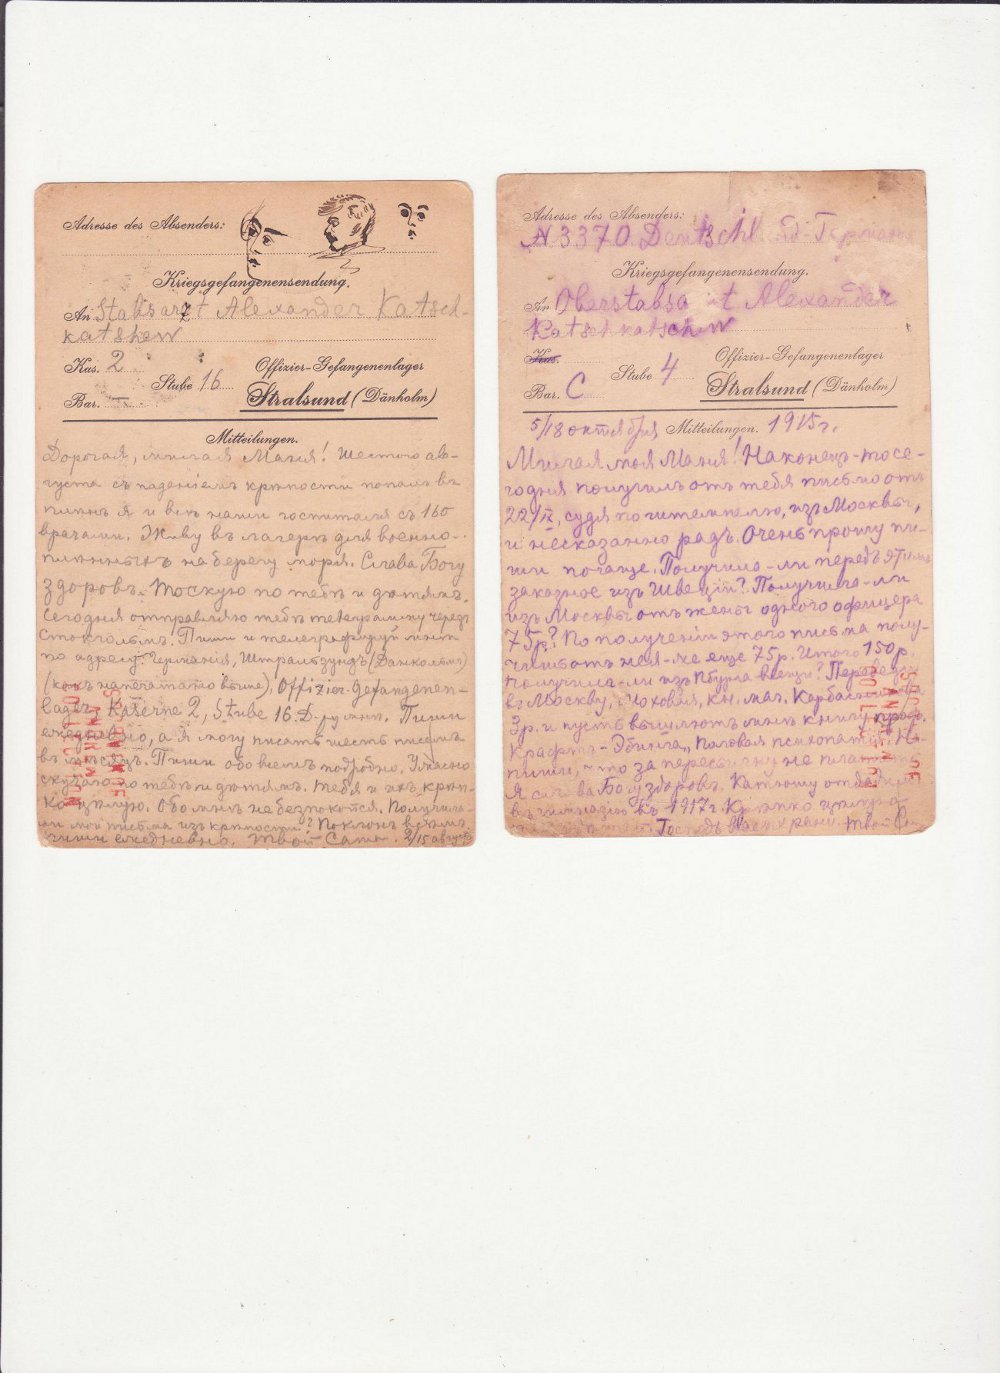 Adresse des Absenders:
Kriegsgefangenensendung.
An Stabsarzt Alexander Katsch-
katshew
Kas. 2
Stube 16
Bar. —
Offizier-Gefangenenlager
Stralsund (Dänholm)
Mitteilungen.
Дорогая, милая Маня! Шестого ав-
густа съ паденіемъ крѣпости попалъ въ
плѣнъ я и всѣ наши госпиталя съ 160
врачами. Живу въ лагерѣ для военно-
плѣнныхъ на берегу моря. Слава Богу
здоровъ. Тоскую по тебѣ и дѣтямъ.
Сегодня отправляю тебѣ телеграмму черезъ
Стокгольмъ. Пиши и телеграфируй мнѣ
по адресу: Германія, Штральзундъ (Данхольмъ)
(какъ напечатано выше). Offizier-Gefangenen-
lager, Kaserne 2, Stube 16. Д-ру мнѣ. Пиши
ежедневно, а я могу писать шесть писемъ
въ мѣсяцъ. Пиши обо всемъ подробно. Ужасно
скучаю по тебѣ и дѣтямъ. Тебя и ихъ крѣп-
ко цѣлую. Обо мнѣ не безпокойся. Получила-
ли мои письма изъ крѣпости? Поклонъ всѣмъ.
Пиши ежедневно. Твой Саша. 2/15 август
Adresse des Absenders:
N 3370. Deutschl nd-Германія
Kriegsgefangenensendung.
An Oberstabsa t Alexander
Katschkatschew
Kas.
Stube 4
Bar. C
Offizier-Gefangenenlager
Stralsund (Dänholm)
5/18 октября Mitteilungen. 1915 г.
Милая моя Маня! Наконецъ-то се-
годня получилъ отъ тебя письмо отъ
22/IX, судя по штемпелю, изъ Москвы,
и несказанно радъ. Очень прошу пи-
ши почаще. Получила-ли передъ этимъ
заказное изъ Швеціи? Получила-ли
изъ Москвы отъ жены одного офицера
75 р.? По полученіи этого письма полу-
чишь отъ нея-же еще 75 р. Итого 150 р.
Получила-ли изъ вещи?
въ Москву, Моховая, кн. маг. Карбасникова
3 р. и пусть вышлютъ мнѣ книгу проф.
Крафтъ-Эбинга, Половая психопатія. На-
пиши, что за пересылку не плат
Я слава Богу здоровъ. Катюшу отдадимъ
въ гимназію въ 1917 г. Крѣпко цѣлую
Господь васъ храни. Твой